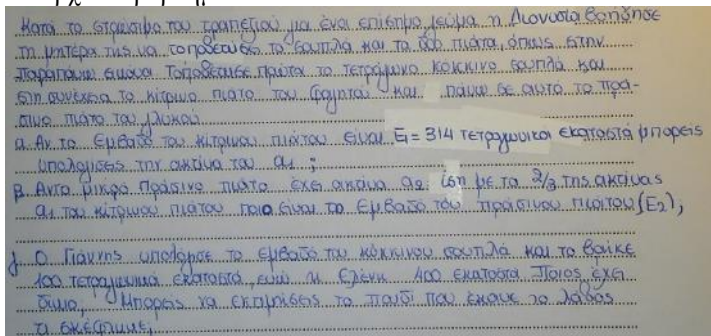 Κατά το στρώσιμο του τραπεζιού για ένα επίσημο γεύμα η Διονυσία βοήθησε
τη μητέρα της να τοποθετήσει το σουπλά και τα δύο πιάτα, όπως στην
παραπάνω εικόνα. Τοποθέτησε πρώτα το τετράγωνο κόκκινο σουπλά και
στη συνέχεια το κίτρινο πιάτο του φαγητού και πάνω σε αυτό το πρά-
σινο πιάτο του γλυκού.
α. Αν το εμβαδό του κίτρινου πιάτου είναι Ε₁ = 314 τετραγωνικά εκατοστά μπορείς
υπολογίσεις την ακτίνα του α₁ ;
β. Αν το μικρό πράσινο πιάτο έχει ακτίνα α₂ ίση με τα 2/3 της ακτίνας
α₁ του κίτρινου πιάτου ποιο είναι το εμβαδό του πράσινου πιάτου (Ε₂);
γ. Ο Γιάννης υπολόγισε το εμβαδό του κόκκινου σουπλά και το βρήκε
100 τετραγωνικά εκατοστά, ενώ η Ελένη 400 εκατοστά. Ποιος έχει
δίκιο; Μπορείς να εκτιμήσεις το παιδί που έκανε το λάθος
τι σκέφτηκε;